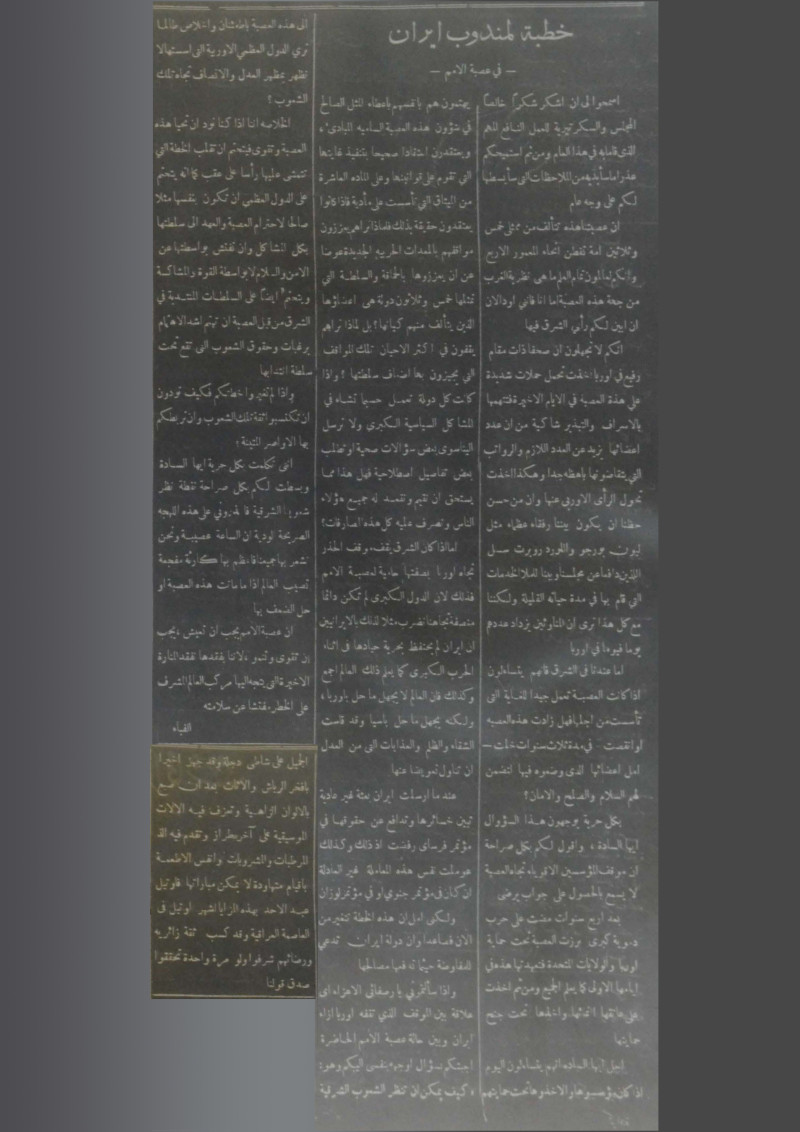 خطبة لمندوب ايران
— في عصبة الامم —
اسمحوا لي ان اشكر شكراً خالصاً
المجلس والسكرتيرية للعمل النافع المهم
الذي قاما به في هذا العام ومن ثم استميحكم
عذراً بما سأبديه من الملاحظات التي سأبسطها
لكم على وجه عام
ان عصبتنا هذه تتألف من ممثلي خمس
وثلاثين امة تقطن أنحاء المعمور الاربع
وانكم تعلمون تمام العلم ما هي نظرية الغرب
من جهة هذه العصبة اما انا فاني اود الان
ان ابين لكم رأي الشرق فيها
انكم لا تجهلون ان صحفاً ذات مقام
رفيع في اوربا اخذت تحمل حملات شديدة
على هذه العصبة في الايام الاخيرة فتتهمها
بالاسراف والتبذير شاكية من ان عدد
اعضائها يزيد عن العدد اللازم والرواتب
التي يتقاضونها باهظة جدا وهكذا اخذت
تحول الرأى الاوربي عنها وان من حسن
حظنا ان يكون بيننا رفقاء عظماء مثل
ليون بورجوا واللورد روبرت سسل
اللذين دافعا عن مجلسنا وبينا للملا الخدمات
التي قام بها في مدة حياته القليلة ولكننا
مع كل هذا نرى ان المناوئين يزداد عددهم
يوما فيوما في اوربا
اما عندنا في الشرق فانهم يتساءلون
اذا كانت العصبة تعمل جيدا للغاية التى
تأسست من اجلها فهل زادت هذه العصبة
او انقصت - في مدة ثلاث سنوات خلت —
امل اعضائها الذى وضعوه فيها لتضمن
لهم السلام والصلح والامان؟
بكل حرية يوجهون هذا السؤوال
ايها السادة ، واقول لكم بكل صراحة
ان موقف المؤسسين الاقوياء تجاه العصبة
لا يسمح بالحصول على جواب يرضى
بعد اربع سنوات مضت على حرب
دموية كبرى برزت العصبة تحت حماية
اوربا والولايات المتحدة فتعهدتها هذه في
ايامها الاولى كما يعلم الجميع ومن ثم اخفت
على عاتقها انمائها واخذها تحت جنح
حمايتها
اجل ايها الساده انهم يتساءلون اليوم
اذ كان مؤسسوها والاخذوها تحت حمايتهم
يهتمون هم بانفسهم باعطاء المثل الصالح
في شؤون هذه العصبة الساميه المبادئ ،
ويعتقدون اعتقادا صحيحا بتنفيذ غايتها
التي تقوم على قوانينها وعلى الماده العاشرة
من الميثاق التي تأسست على مأدبة فاذا كانوا
يعتقدون حقيقة بذلك فلماذا نراهم يعززون
مواقفهم بالمعدات الحربيه الجديدة عوضا
عن ان يعززوها بالمخافة والسلطة التي
تمثلها خمس وثلاثون دولة هى اعضاؤها
الذين يتألف منهم كيانها؟ بل لماذا نراهم
يقفون في اكثر الاحيان تلك المواقف
التي يجيزون بها اضعاف سلطتها ؟ واذا
كانت كل دولة تعمل حسبما تشاء في
المشاكل السياسية الكبرى ولا ترسل
الينا سوى بعض سؤالات صحية او تطلب
بعض تفاصيل اصطلاحية فهل هذا مما
يستحق ان نقيم ونقعد له جميع هؤلاء
الناس ونصرف عليه كل هذه المصاريف؟
اما اذا كان الشرق يقف موقف الحذر
تجاه اوربا بصفتها حامية لعصبة الامم
فذلك لان الدول الكبرى لم تكن دائما
منصفة تجاهنا نضرب مثلا لذلك بالايرانيين
ان ايران لم تحتفظ بحرية حيادها في اثناء
الحرب الكبرى كما يعلم ذلك العالم اجمع
وكذلك فان العالم لا يجهل ما حل باوربا ،
ولكنه يجهل ما حل باسيا وقد قاست
الشقاء والظلم والعذابات التى من العدل
ان تناول تعويضنا عنها
عندما ارسلت ايران بعثة غير عادية
تبين خسائرها وتدافع عن حقوقها في
مؤتمر فرساى رفضت اذ ذاك وكذلك
عوملت نفس هذه المعاملة غير العادلة
ان كان في مؤتمر جنوى او في مؤتمر لوزان
ولكنى امل ان هذه الخطة تتغير من
الان فصاعداً وان دولة ايران تدعى
للمفاوضة حيثما تدفعها مصالحها
واذا سألتموني يا رصفائى الاعزاء اى
علاقة بين الموقف الذي تقفه اوربا ازاء
ايران وبين حالة عصبة الامم الحاضرة
اجبتكم بسؤال اوجهه بنفسى اليكم وهو:
« كيف يمكن ان تنظر الشعوب الشرقية
الى هذه العصبة باطمئنان واخلاص طالما
ترى الدول العظمى الاوربية التى اسستها لا
تظهر بمظهر العدل والانصاف تجاه تلك
الشعوب ؟
الخلاصه اننا اذا كنا نود ان تحيا هذه
العصبة وتقوى فيتحتم ان تقلب الخطة التى
تتمشى عليها رأسا على عقب كما انه يتحتم
على الدول العظمى ان تكون بنفسها مثلا
صالحا لاحترام العصبة والعهد الى سلطتها
بكل المشاكل وان تفتش بواسطتها عن
الامن والسلام لا بواسطة القوة والمشاكسة
ويتحتم ايضاً على السلطات المنتدبة في
الشرق من قبل العصبة ان تهتم اشد الاهتمام
برغبات وحقوق الشعوب التى تقع تحت
سلطة انتدابها
واذا لم تغيروا خطتكم فكيف تودون
ان تكتسبوا ثقة تلك الشعوب وان تربطكم
بها الاواصر المتينة ؛
انى تكلمت بكل حرية ايها السادة
وبسطت لكم بكل صراحة نقطة نظر
شعوبنا الشرقية فاعذروني على هذه اللهجه
الصريحة لودية ان الساعة عصيبة ونحن
نشعر بها جميعنا فاعظم بها كارثة مفجعة
تصيب العالم اذا ما ماتت هذه العصبة او
حل الضعف بها
ان عصبة الامم يجب ان تعيش ، يجب
ان تقوى وتنمو ، لاننا بفقدها نفقد المنارة
الاخيرة التى يتجه اليها مركب العالم المشرف
على الخطر مفتشا عن سلامته
الفباء
الجميل على شاطى دجلة وقد جهز اخيرا
بافخر الرياش والاثاث بعد ان صبغ
بالالوان الزاهية وتعزف فيه الالات
الموسيقية على آخر طراز وتقدم فيه الذ
المرطبات والمشروبات وانفس الاطعمة
باقيام متهاودة لا يمكن مباراتها فاوتيل
عبد الاحد بهذه المزايا اشهر اوتيل فى
العاصمة العراقية وقد كسب ثقة زائريه
ورضائهم شرفوا ولو مرة واحدة تحققوا
صدق قولنا